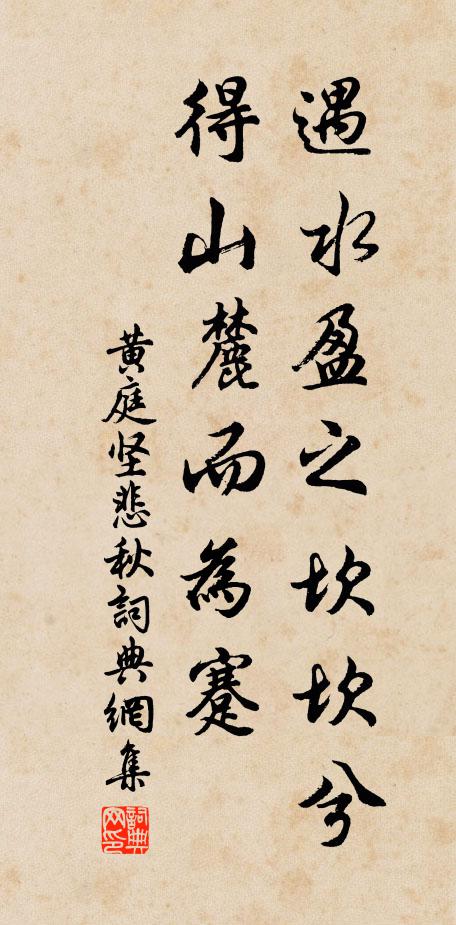 遇水盈之坎坎兮
得山麓而為蹇
黃庭坚悲秋詞典網集
詞典网印